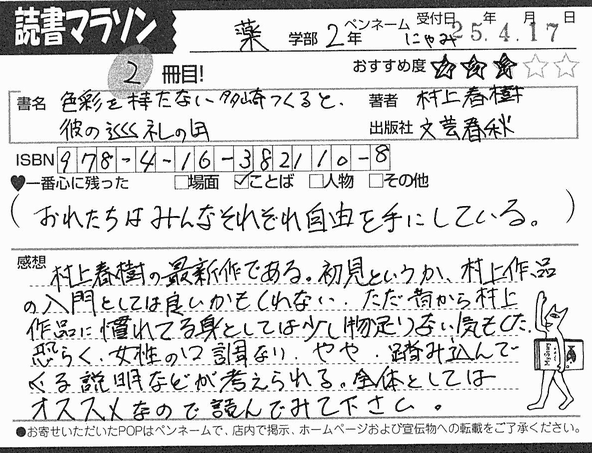 読書マラソン
薬 学部 2年 ペンネーム にゃみ 受付日 25年 4月 17日
2 冊目! おすすめ度 ★★★☆☆
書名 色彩を持たない多崎つくると、 著者 村上春樹
彼の巡礼の年 出版社 文芸春秋
ISBN 978-4-16-382110-8
♥一番心に残った □場面 ☑ことば □人物 □その他
(おれたちはみんなそれぞれ自由を手にしている。)
感想 村上春樹の最新作である。初見というか、村上作品
の入門としては良いかもしれない、ただ昔から村上
作品に慣れてる身としては少し物足りない気もした
恐らく、女性の口調なり、やや、踏み込んで
くる説明などが考えられる。全体としては
オススメなので読んでみて下さい。
●お寄せいただいたPOPはペンネームで、店内で掲示、ホームページおよび宣伝物への転載をご了承ください。